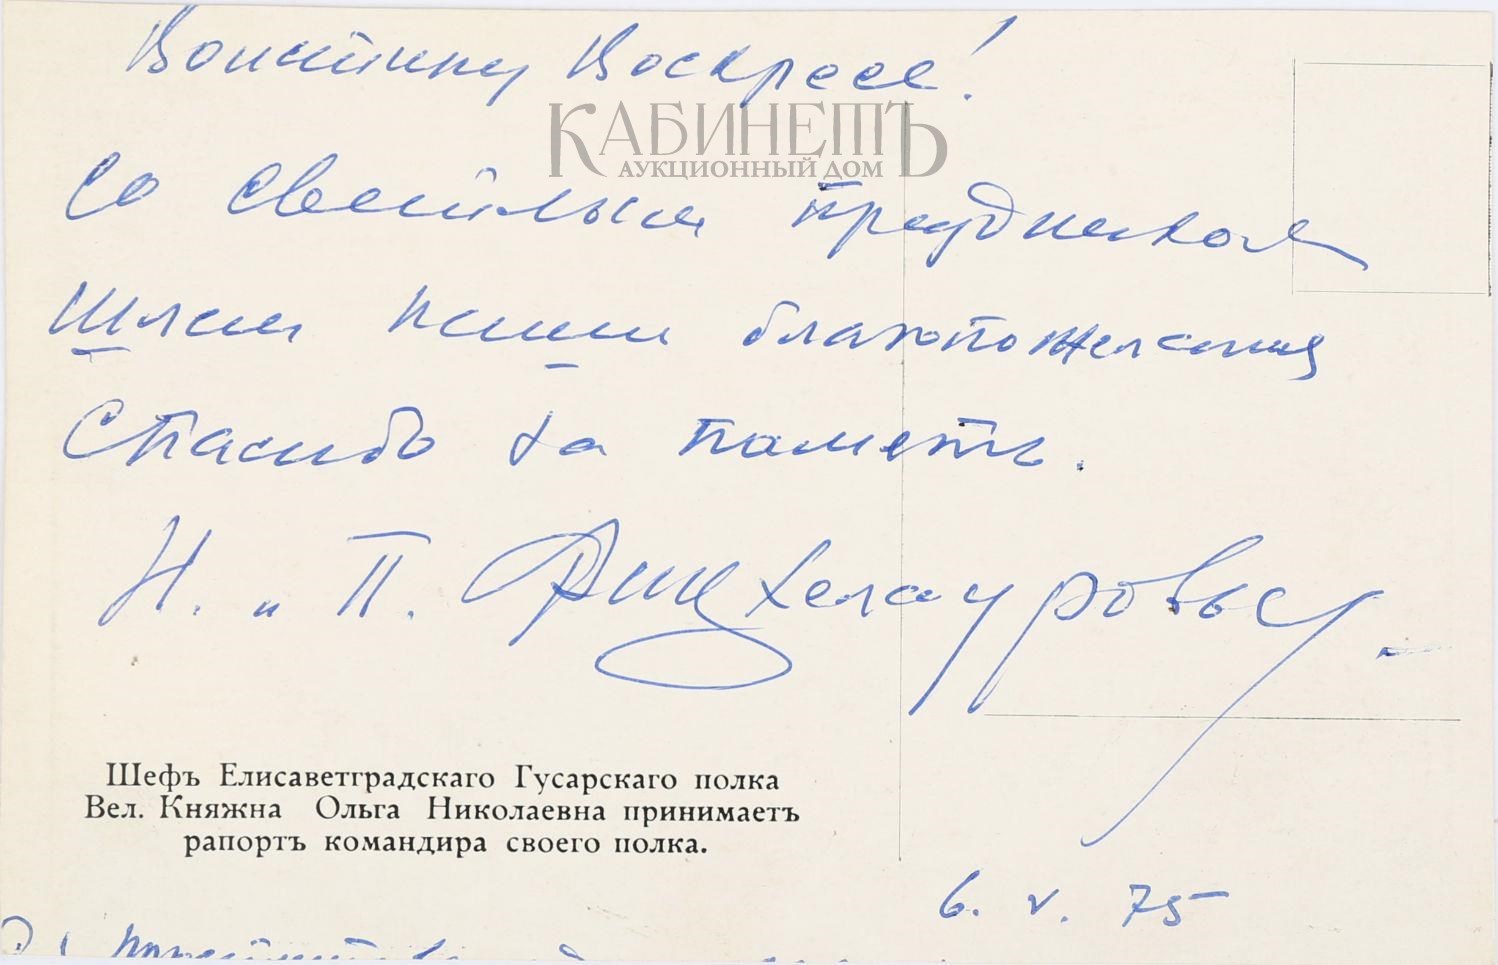 Воистину Воскресе!
КАБИНЕТЪ
АУКЦИОННЫЙ ДОМ
Со светлым праздником
Шлем наши благопожелания
Спасибо за память.
Н. и П.
Шефъ Елисаветградскаго Гусарскаго полка
Вел. Княжна Ольга Николаевна принимаетъ
рапортъ командира своего полка.
6. V. 75